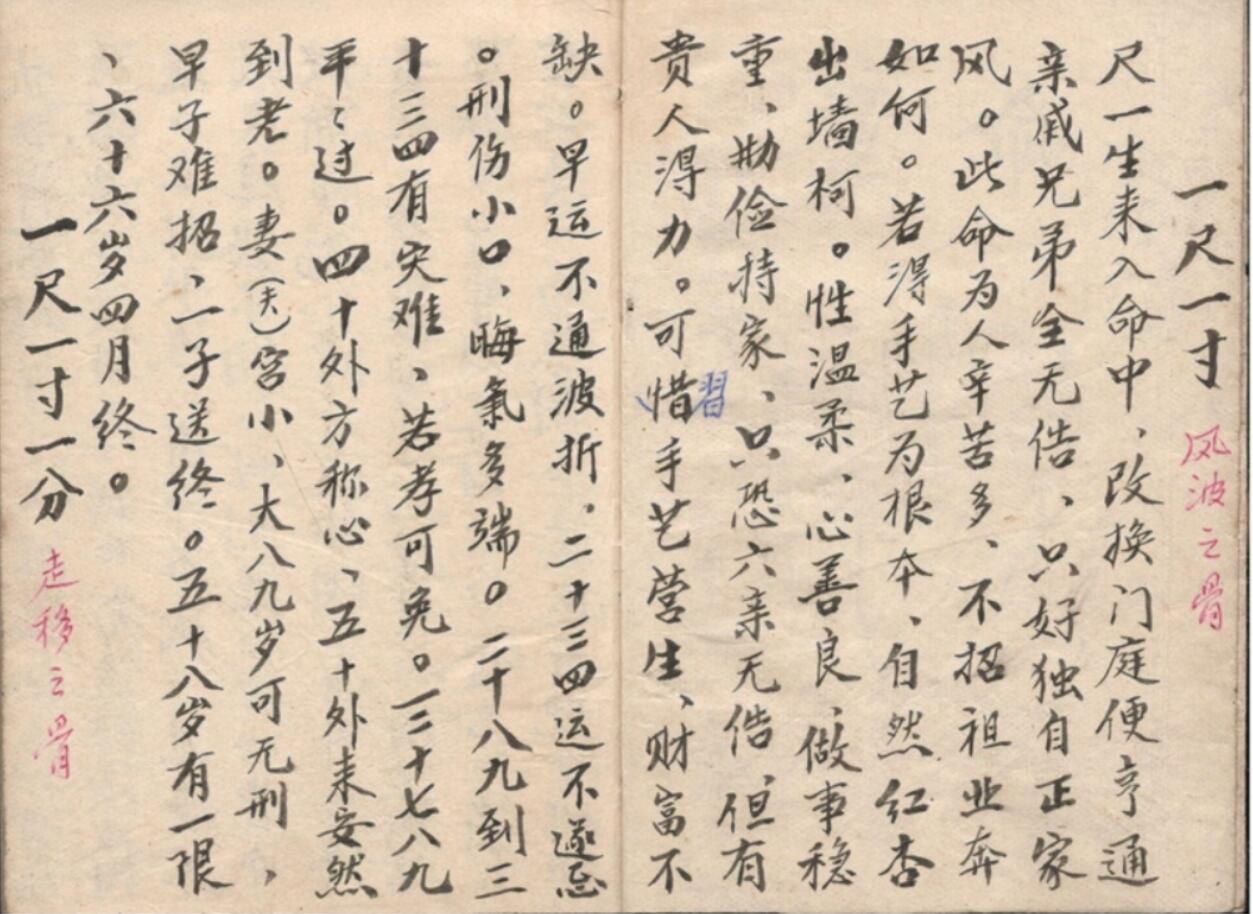 一尺一寸 风波之骨
尺一生来入命中、改换门庭便亨通
亲戚兄弟全无俈、只好独自正家
风。此命为人辛苦多、不招祖业奔
如何。若得手艺为根本、自然红杏
出墙柯。性温柔、心善良、做事稳
重、勤俭持家、只恐六亲无俈、但有
贵人得力。可惜習手艺营生、财富不
缺。早运不通波折、二十三四运不遂忌
。刑伤小口、晦氣多端。二十八九到三
十三四有灾难、若孝可免。三十七八九
平〻过。四十外方称心、五十外来安然
到老。妻（夫）宫小、大八九岁可无刑、
早子难招、一子送终。五十八岁有一限
、六十六岁四月终。
一尺一寸一分 走移之骨